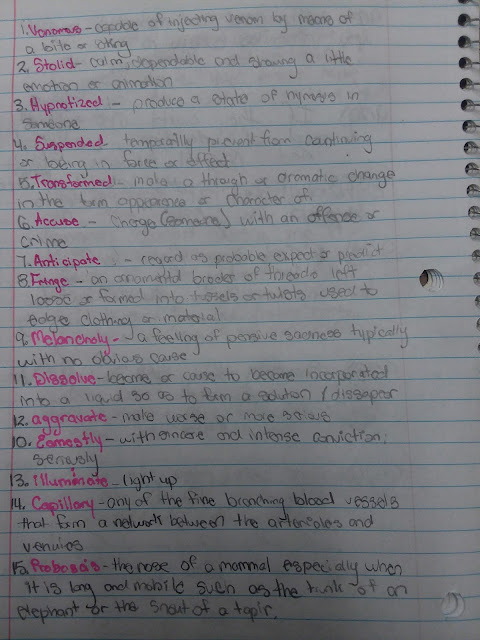 1. Venomous - capable of injecting venom by means of
a bite or sting
2. Stolid - calm, dependable and showing a little
emotion or animation
3. Hypnotized - produce a state of hypnosis in
someone
4. Suspended temporarily prevent from continuing
or being in force or effect
5. Transformed - make a through or dramatic change
in the form appearance or character of.
6. Accuse - Charge (someone) with an offence or
crime
7. Anticipate - regard as probable expect or predict
8. Fringe - an ornamental broder of threads left
loose or formed into tassels or twists used to
edge clothing or material
9. Melancholy - a feeling of pensive sadness typically
with no obvious cause
11. Dissolve - become or cause to become incorporated
into a liquid so as to form a solution / dissapear
12. aggravate - make worse or more serious
10. Earnestly - with sincere and intense conviction;
seriously
13. illuminate - light up
14. Capillary - any of the fine branching blood vessels
that form a network between the arterioles and
venules
15. Proboscis - the nose of a mammal especially when
it is long and mobile such as the trunk of an
elephant or the snout of a tapir.